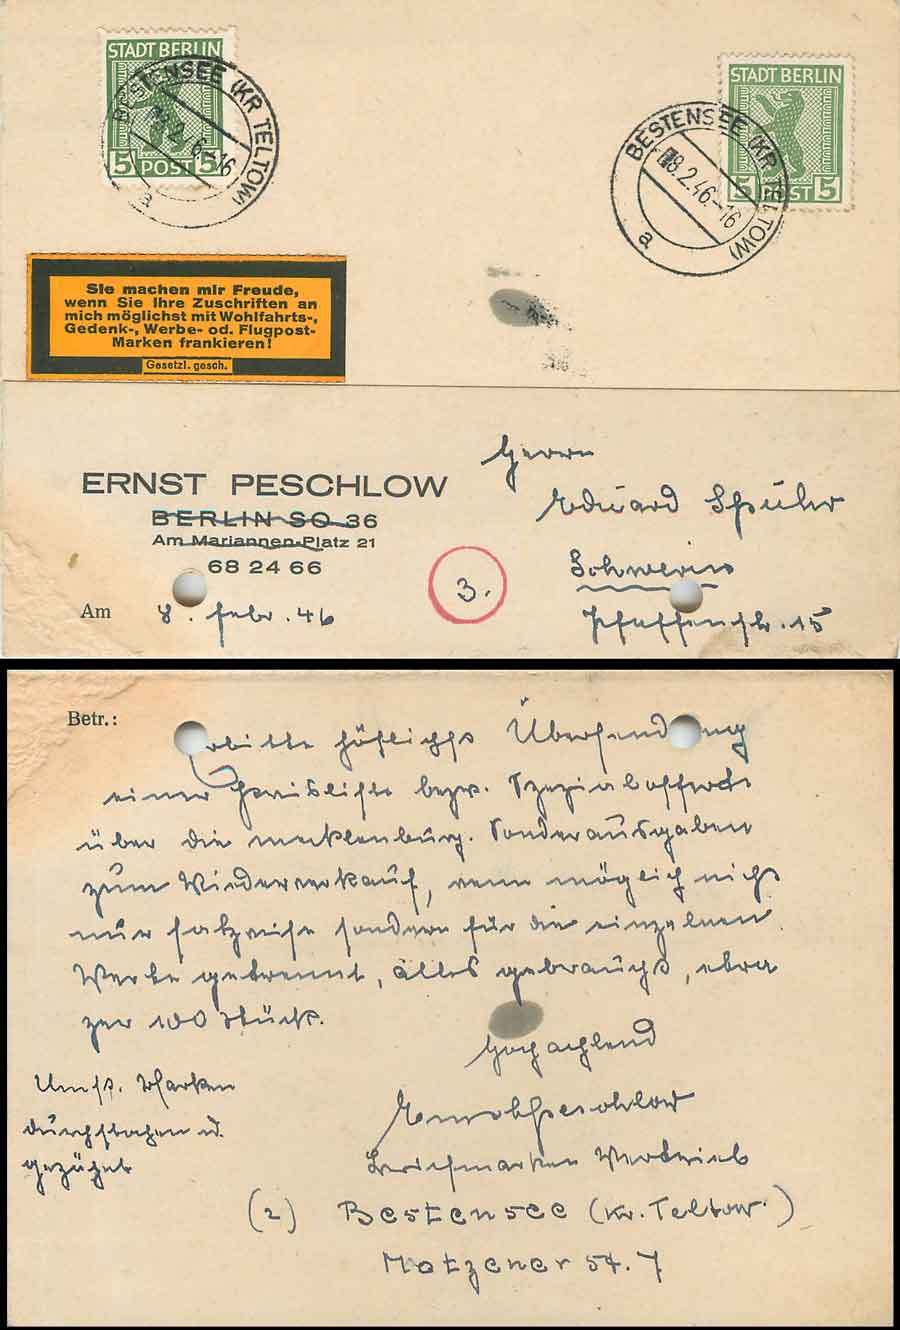 STADT BERLIN
5 POST 5
BESTENSEE (KR TELTOW)
8.2.46-16
a
STADT BERLIN
5 POST 5
BESTENSEE (KR TELTOW)
8.2.46.-16
a
Sie machen mir Freude,
wenn Sie Ihre Zuschriften an
mich möglichst mit Wohlfahrts-,
Gedenk-, Werbe- od. Flugpost-
Marken frankieren!
Gesetzl. gesch.
ERNST PESCHLOW
BERLIN SO 36
Am Mariannen-Platz 21
68 24 66
Am 8. Febr. 46
3.
Herrn
Eduard Spuhr
Schwerin
Pfaffenstr. 15
Betr.:
Erbitte höflichst Übersendung
einer Preisliste bezw. Spezialofferte
über die mecklenburg. Sonderausgaben
zum Wiederverkauf, wenn möglich nicht
nur satzweise sondern für die einzelnen
Werte getrennt, alles gebraucht, etwa
per 100 Stück.
Hochachtend
Ernst Peschlow
Briefmarken Vertrieb
(2) Bestensee (Kr. Teltow.)
Motzener St. 7
Umst. Marken
durchstochen u.
gezähnt